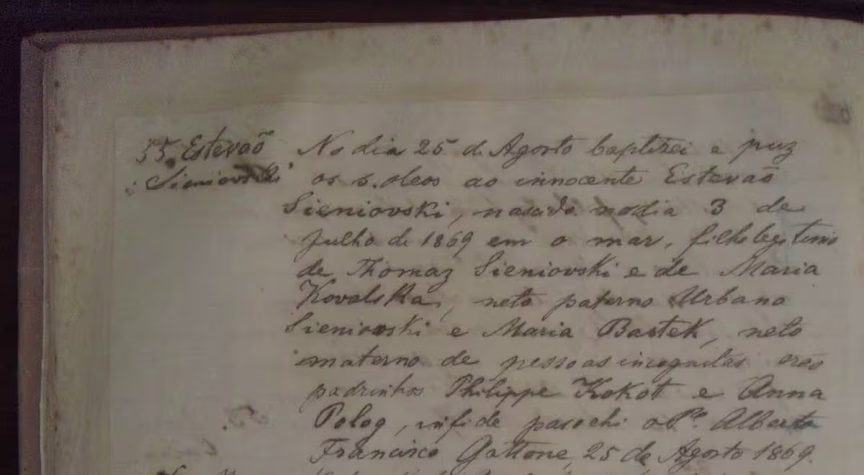 55. Estevaõ
Sieniovski
No dia 25 de Agosto baptizei e puz
os s. oleos ao innocente Estevaõ
Sieniovski, nascido no dia 3 de
Julho de 1869 em o mar, filho legitimo
de Thomaz Sieniovski e de Maria
Kovalska, neto paterno Urbano
Sieniovski e Maria Bastek, neto
materno de pessoas incognitas eraõ
padrinhos Philippe Kokot e Anna
Polog, in fide parochi o Pe. Alberto
Francisco Gattone, 25 de Agosto 1869.